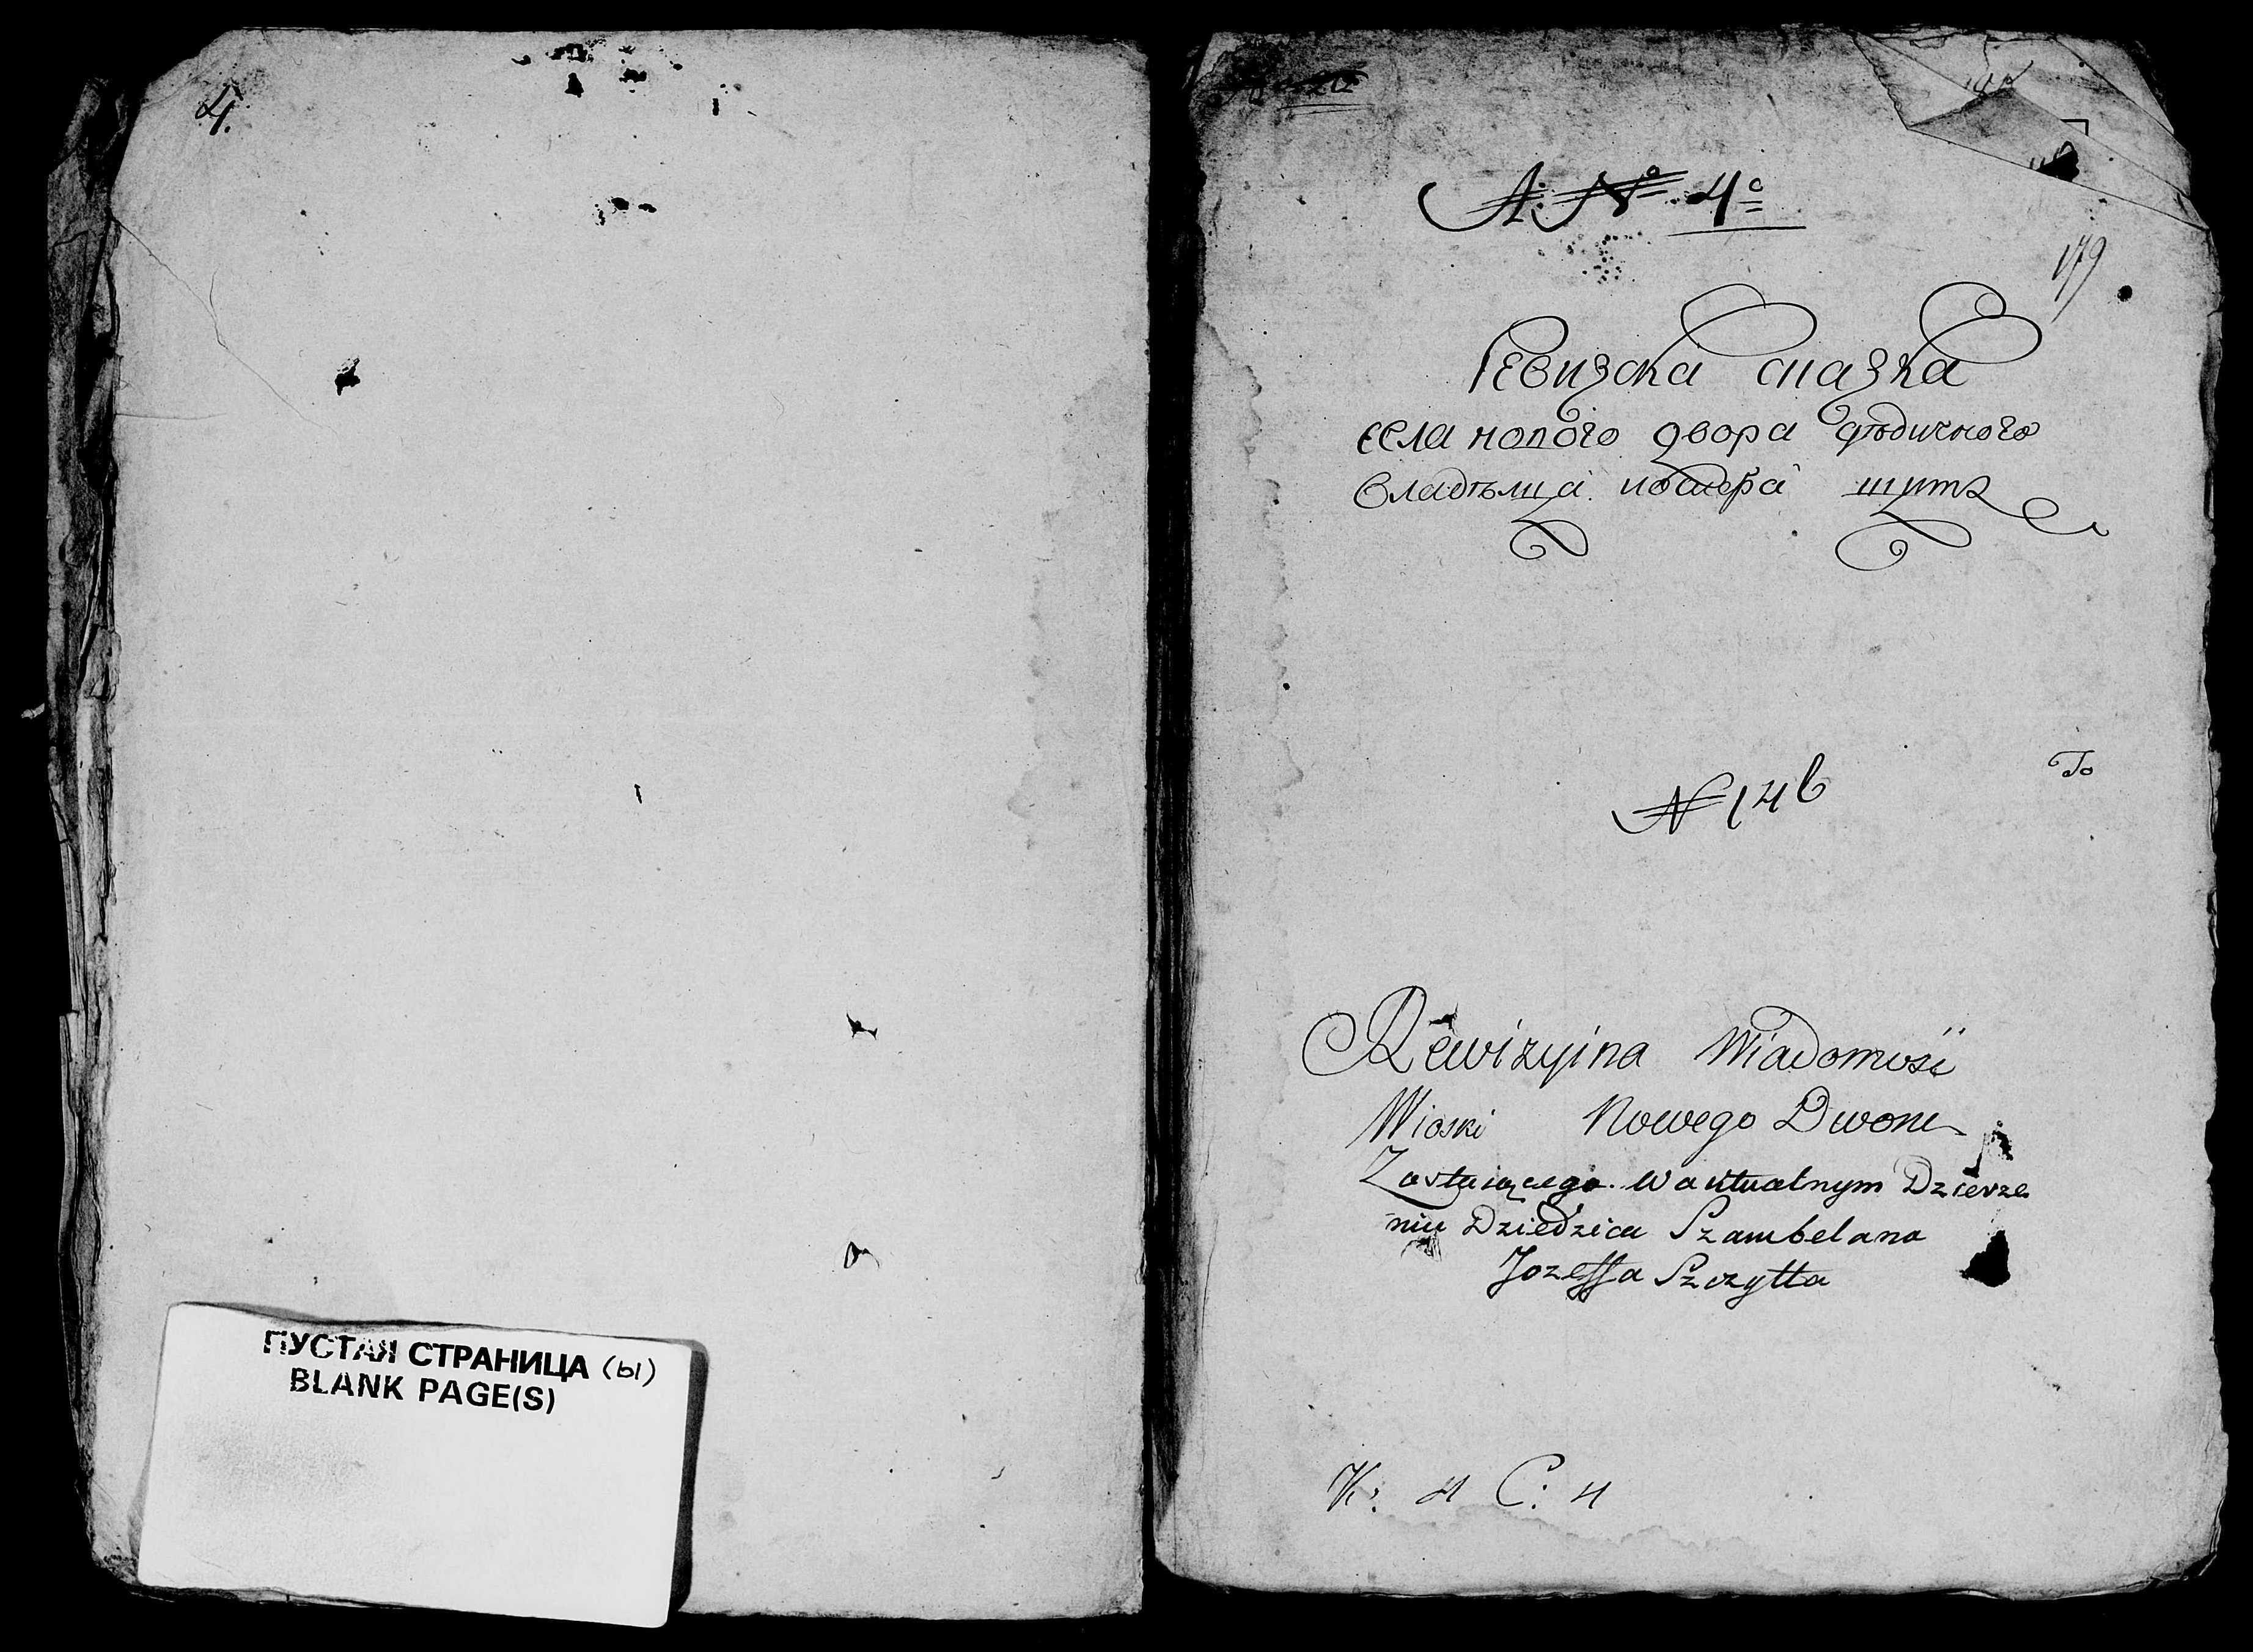 4.
ПУСТАЯ СТРАНИЦА (ы)
BLANK PAGE(S)
A: № 4º
179
Ревизска сказка
села нового двора
владѣлца
То
N 146
Rewizyina Wiadomość
Wioski Nowego Dworu
Zostaiącego w actualnym Dzierże
niu Dziedzica Szambelana
Jozeffa Szczytta
K: 4 C: 4